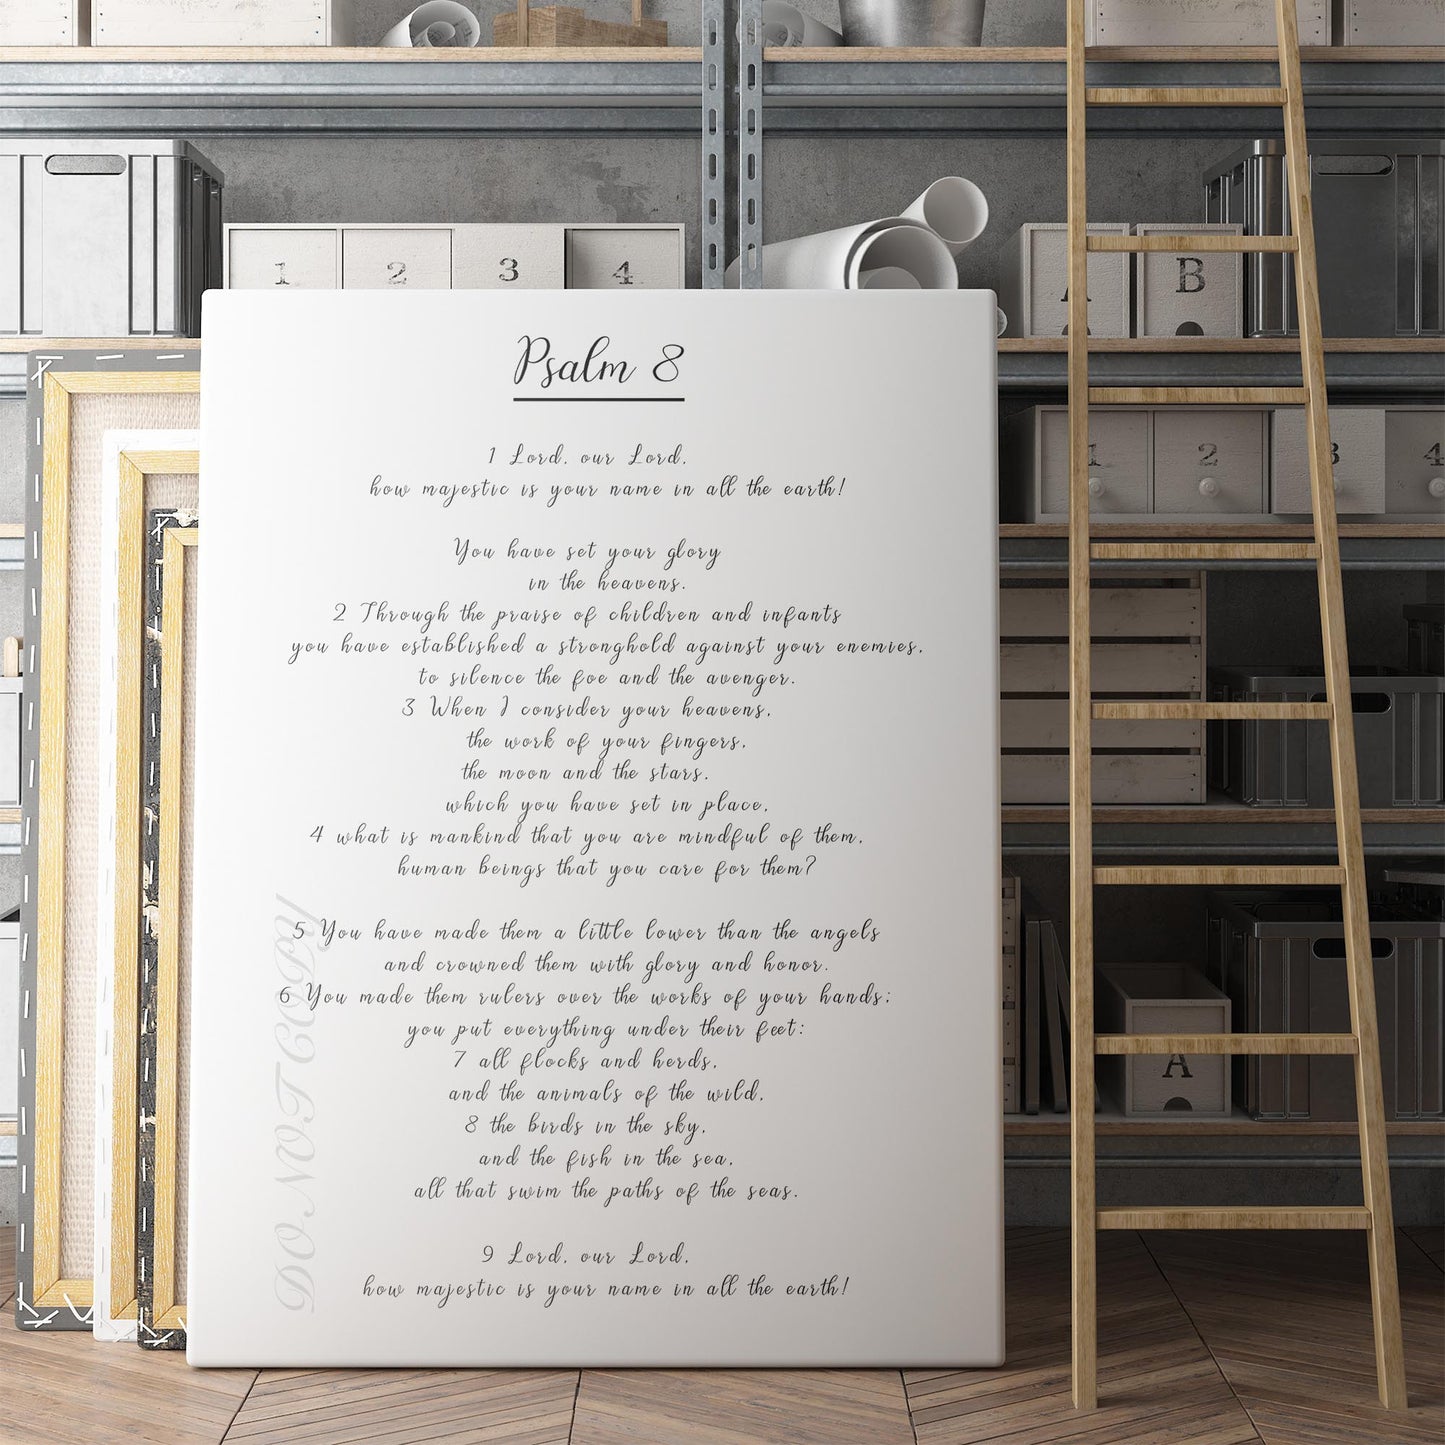 1 2 3 4
A B
1 2 3 4
A
Psalm 8
1 Lord, our Lord,
how majestic is your name in all the earth!
You have set your glory
in the heavens.
2 Through the praise of children and infants
you have established a stronghold against your enemies,
to silence the foe and the avenger.
3 When I consider your heavens,
the work of your fingers,
the moon and the stars,
which you have set in place,
4 what is mankind that you are mindful of them,
human beings that you care for them?
5 You have made them a little lower than the angels
and crowned them with glory and honor.
6 You made them rulers over the works of your hands;
you put everything under their feet:
7 all flocks and herds,
and the animals of the wild,
8 the birds in the sky,
and the fish in the sea,
all that swim the paths of the seas.
9 Lord, our Lord,
how majestic is your name in all the earth!
DO NOT COPY